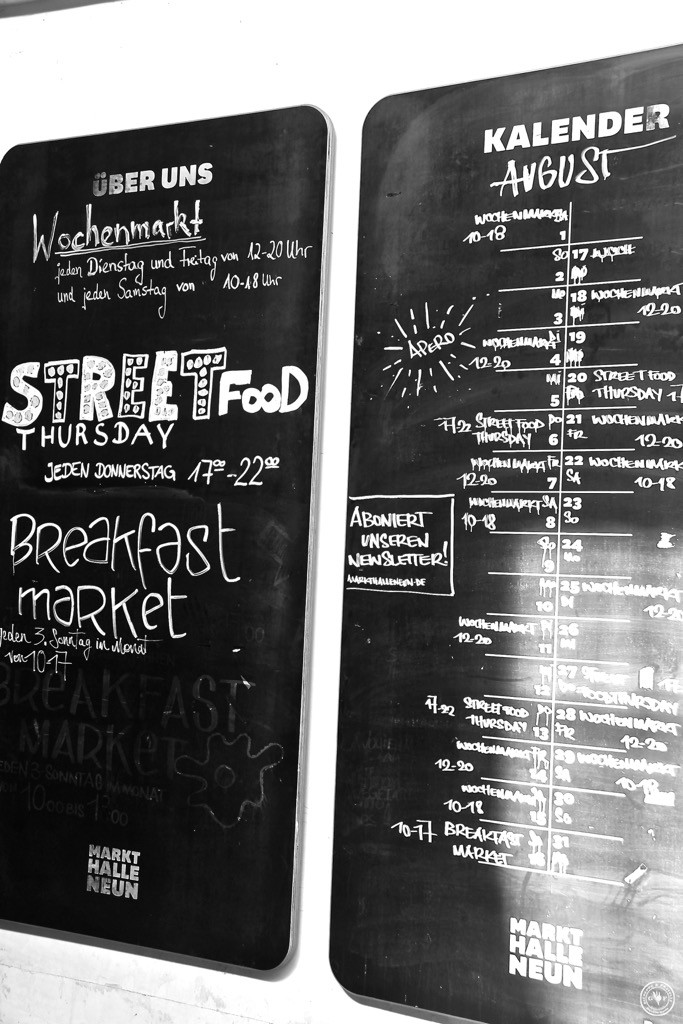 ÜBER UNS
Wochenmarkt
jeden Dienstag und Freitag von 12-20 Uhr
und jeden Samstag von 10-18 Uhr
STREET FOOD
THURSDAY
JEDEN DONNERSTAG 17⁰⁰-22⁰⁰
Breakfast
market
jeden 3. Sonntag im Monat
von 10-17
BREAKFAST
MARKET
JEDEN 3. SONNTAG IM MONAT
MARKT
HALLE
NEUN
KALENDER
AUGUST
WOCHENMARKT SA
10-18 1
SO 17
2
MO 18 WOCHENMARKT
3 12-20
APERO
WOCHENMARKT DI 19
12-20 4
MI 20 STREET FOOD
5 THURSDAY
17-22 STREET FOOD DO 21 WOCHENMARKT
THURSDAY 6 FR 12-20
WOCHENMARKT FR 22 WOCHENMARKT
12-20 7 SA 10-18
WOCHENMARKT SA 23
10-18 8 SO
ABONIERT
UNSEREN
NEWSLETTER!
MARKTHALLENEUN.DE
SO 24
9
25 WOCHENMARKT
10 12-20
WOCHENMARKT 26
12-20 11
27
12 FOODTHURSDAY
17-22 STREET FOOD 28 WOCHENMARKT
THURSDAY 13 FR 12-20
WOCHENMARKT FR 29 WOCHENMARKT
12-20 14 SA 10-18
WOCHENMARKT 30
10-18 15 SO
10-17 BREAKFAST 31
MARKET 16
MARKT
HALLE
NEUN